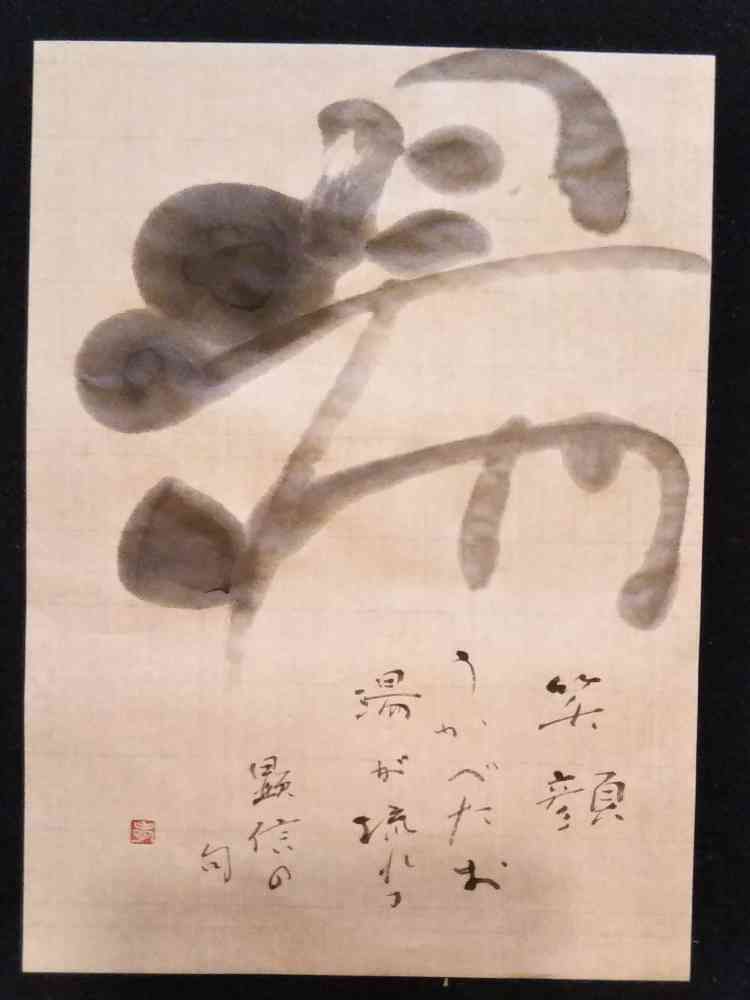 湯
笑顔
うかべたお
湯が流れる
顕信の
句